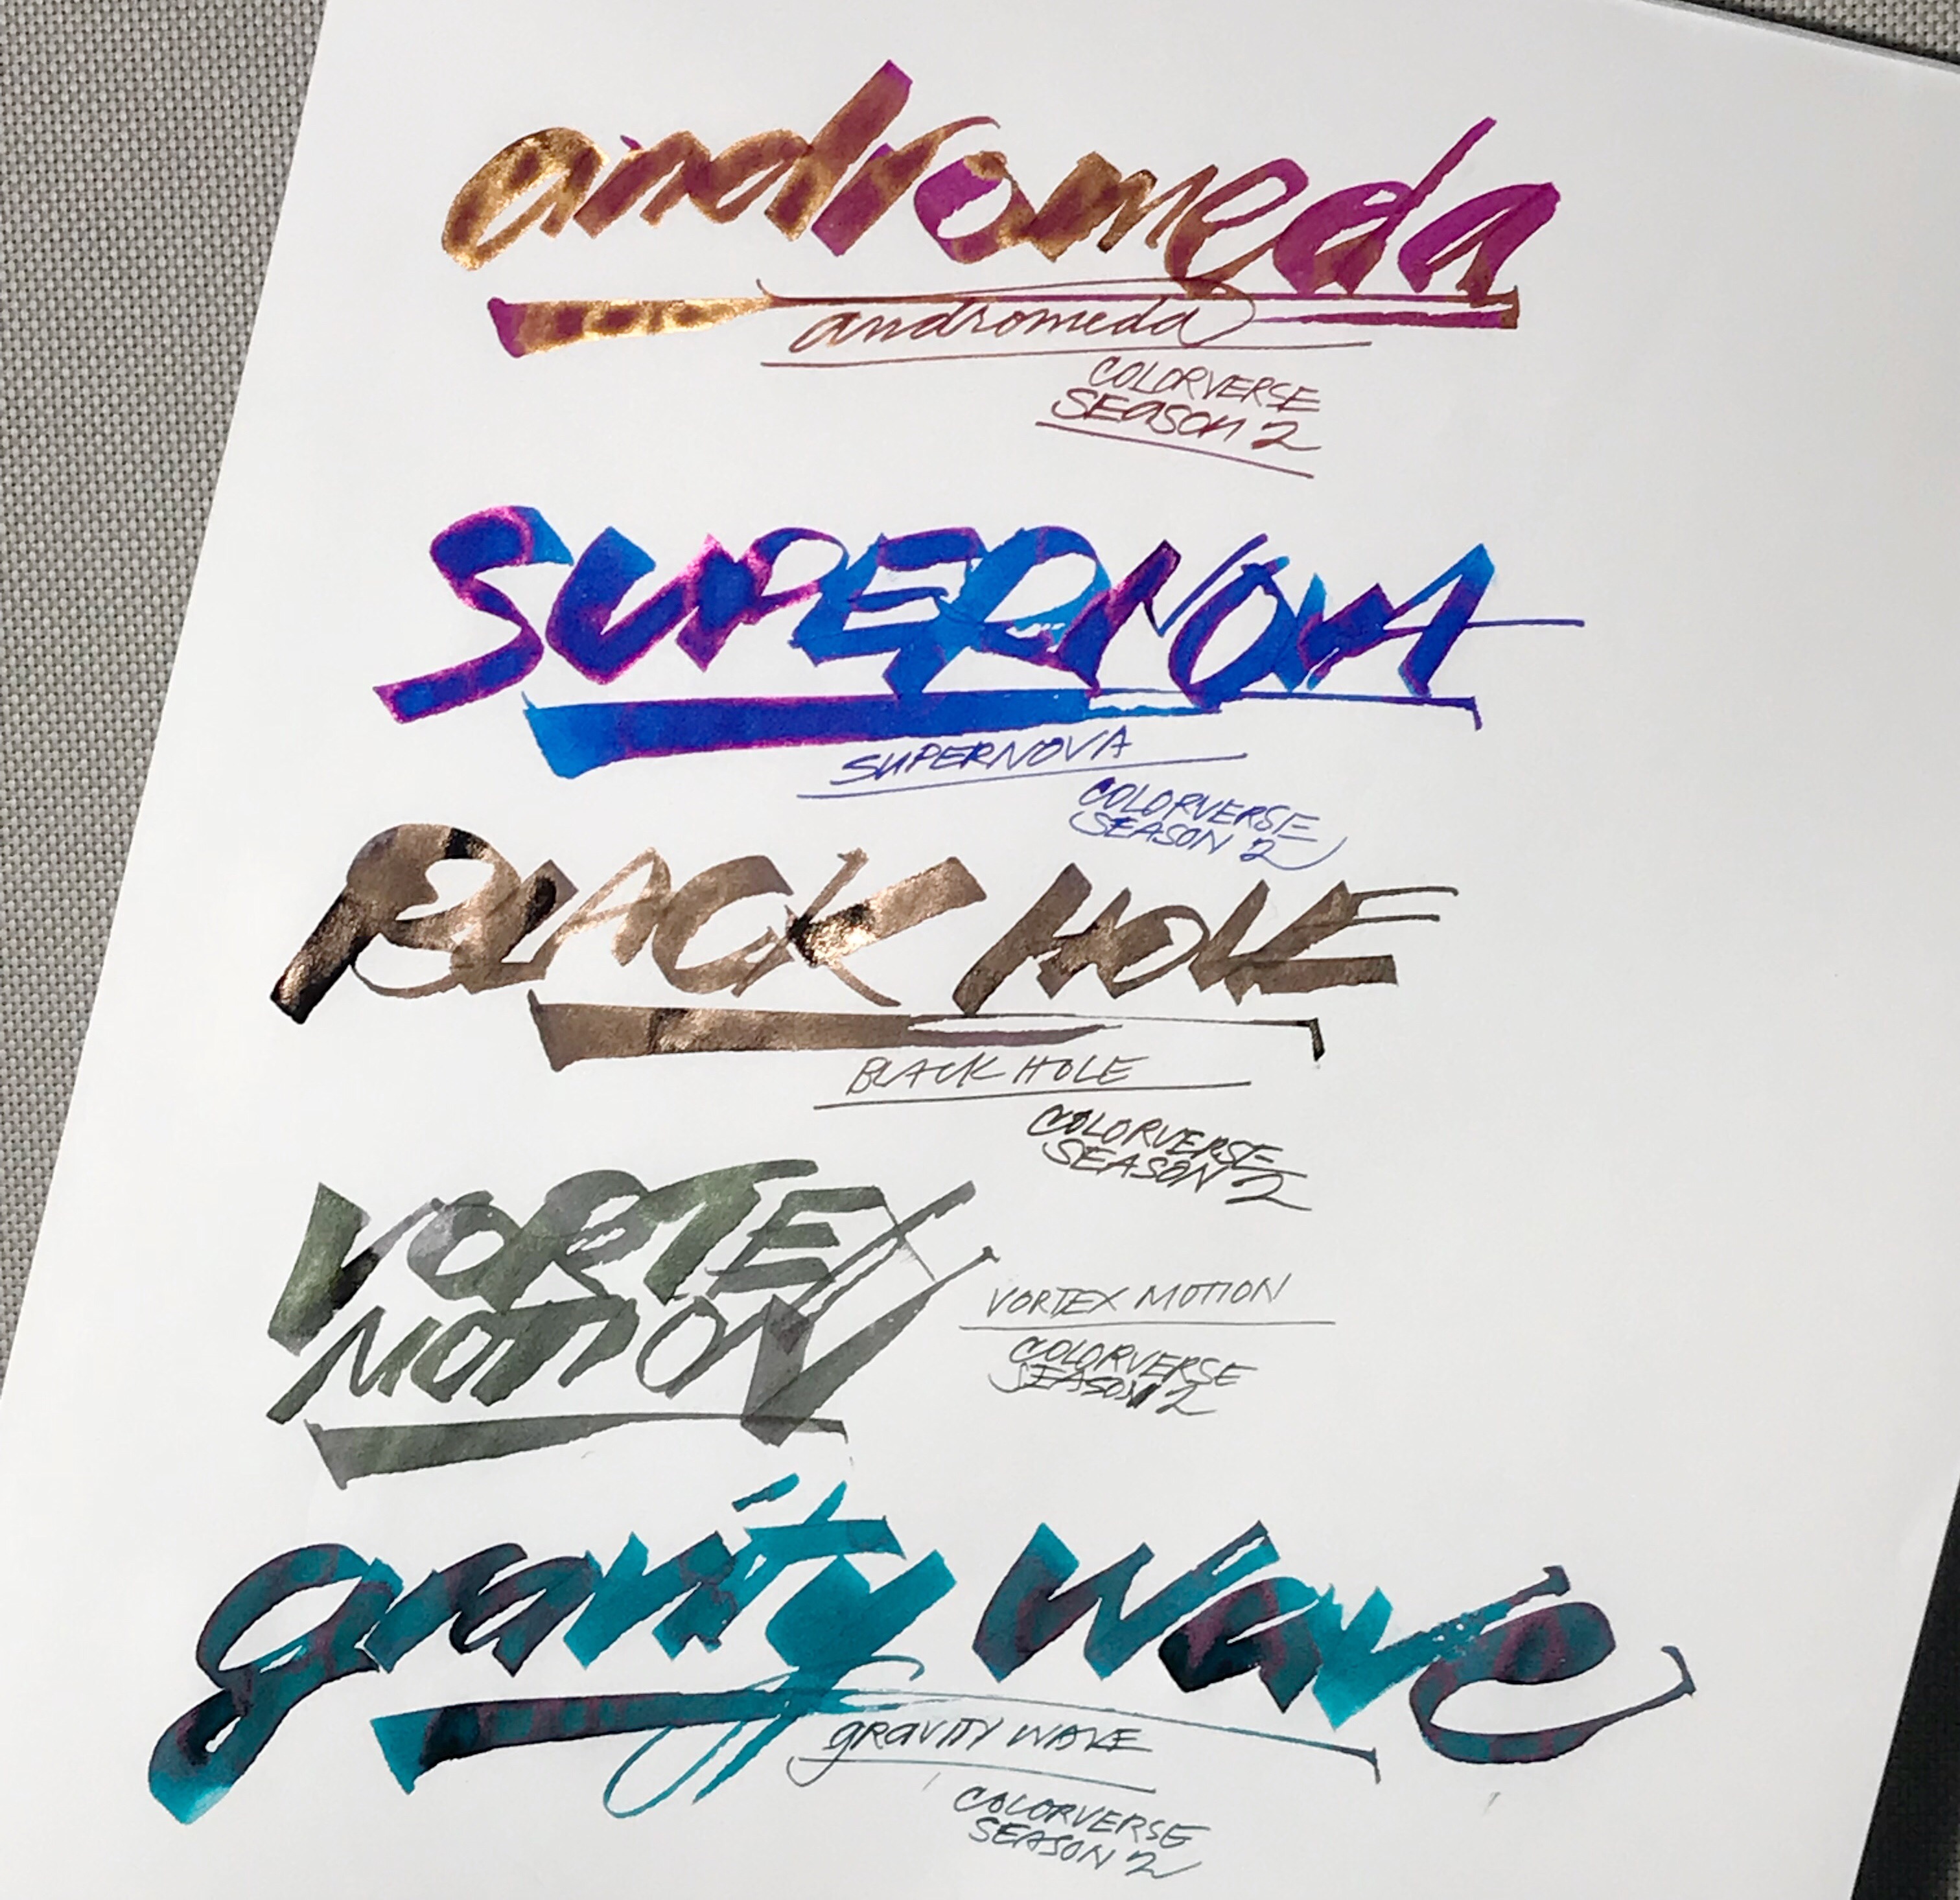 andromeda
andromeda
COLORVERSE
SEASON 2
SUPERNOVA
SUPERNOVA
COLORVERSE
SEASON 2
BLACK HOLE
BLACK HOLE
COLORVERSE
SEASON 2
VORTEX
MOTION
VORTEX MOTION
COLORVERSE
SEASON 2
gravity wave
GRAVITY WAVE
COLORVERSE
SEASON 2